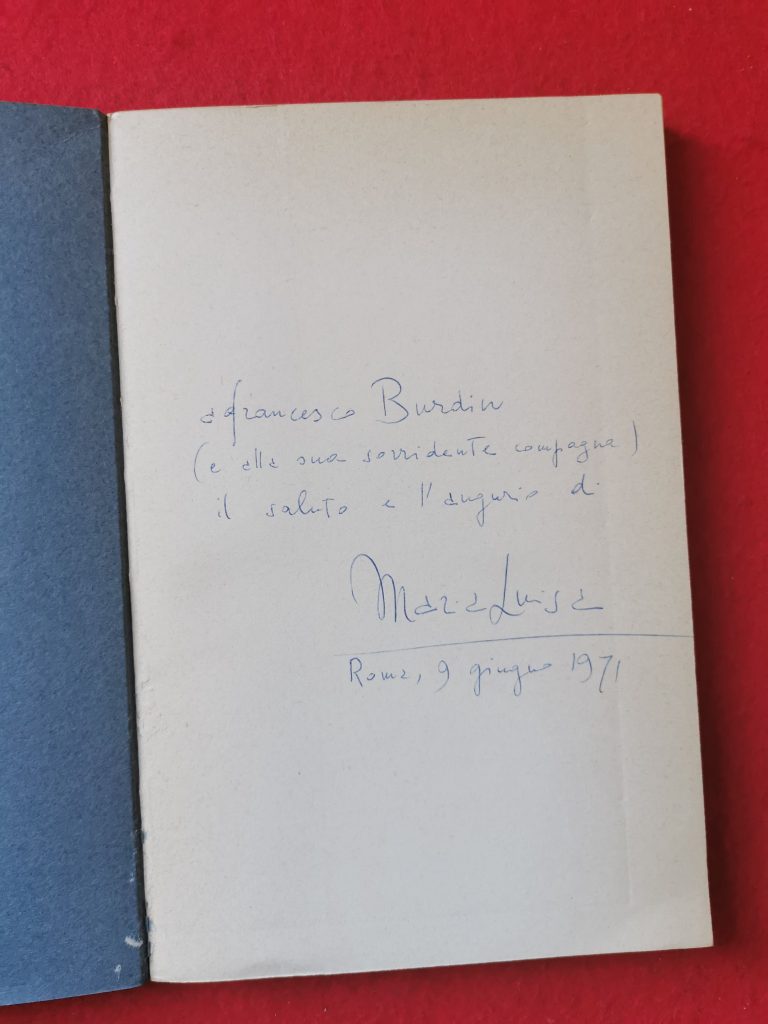 a Francesco Burdin
(e alla sua sorridente compagna)
il saluto e l'augurio di
Maria Luisa
Roma, 9 giugno 1971